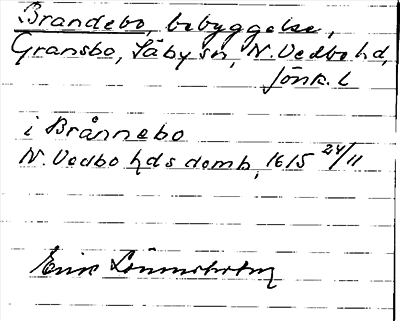 Brandebo, bebyggelse,
Gransbo, Säby sn, N. Vedbo hd,
Jönk. l
i Brånnebo
N. Vedbo hds domb, 1615 24/11
Erik Lönnholm